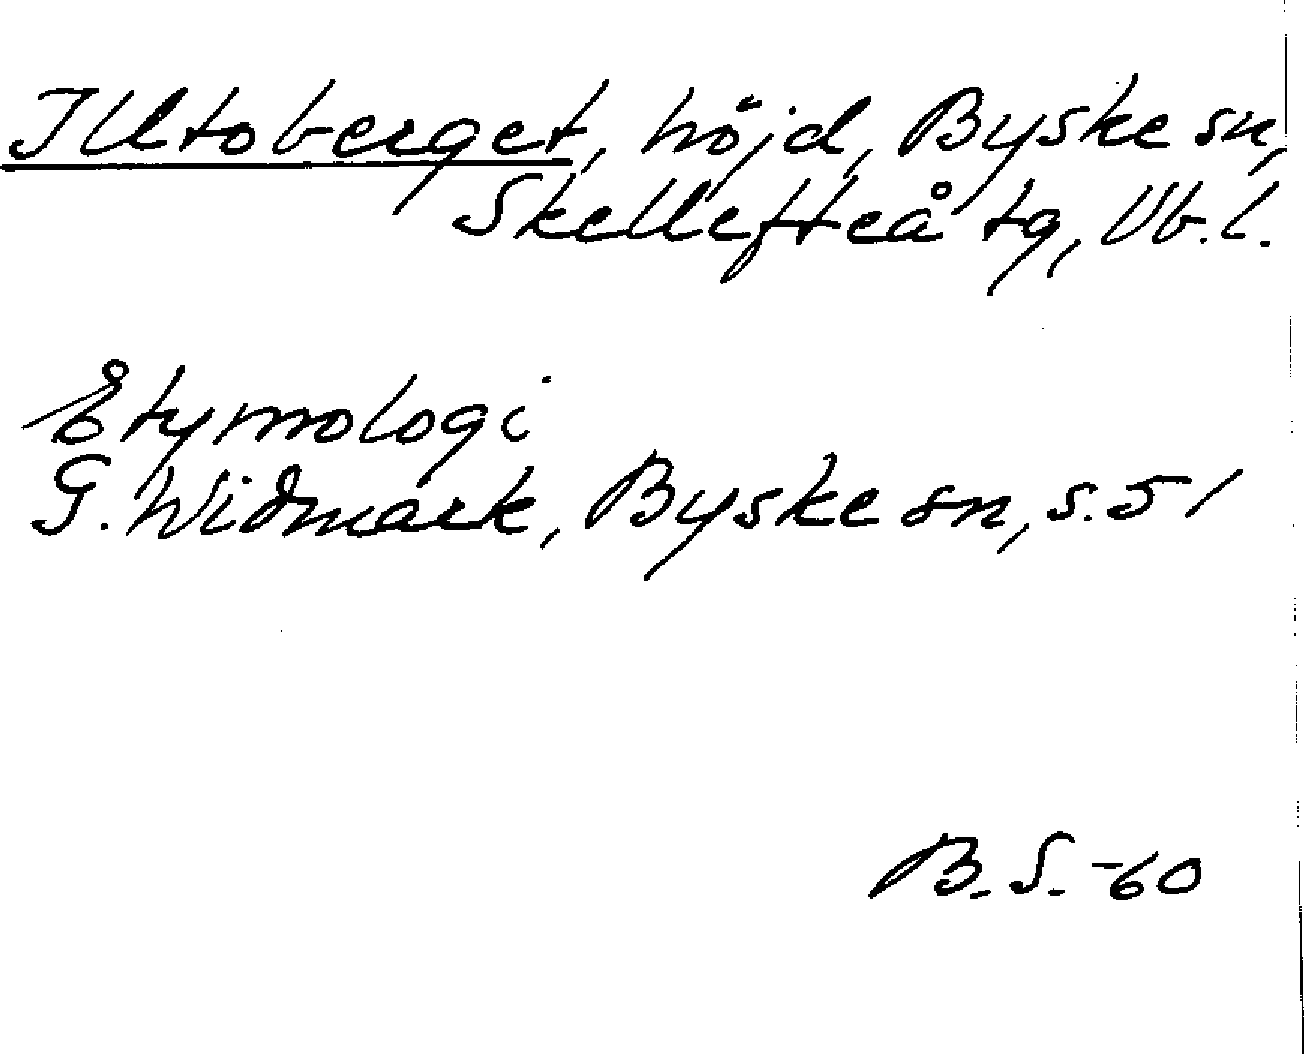 Illtoberget, höjd, Byske sn,
Skellefteå tg, Vb. l.
Etymologi
G. Widmark, Byske sn, s. 51
B. S. -60